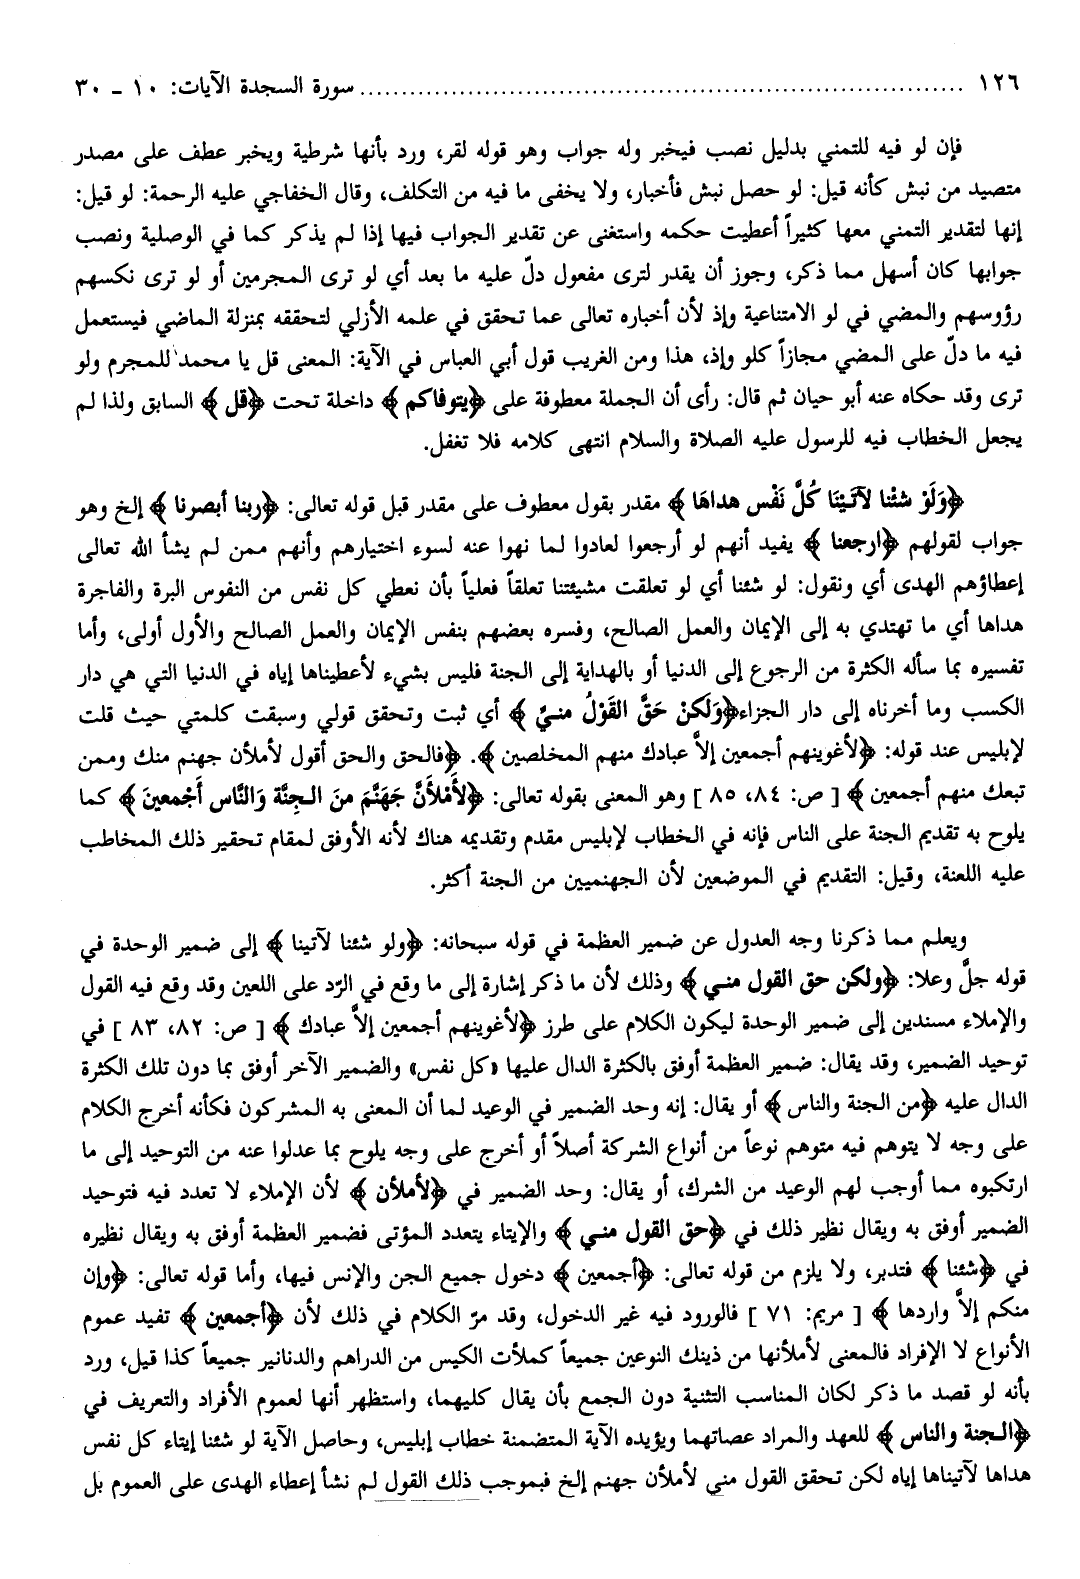 ١٢٦ ........................................................ سورة السجدة الآيات: ١٠ ـ ٣٠
فإن لو فيه للتمني بدليل نصب فيخبر وله جواب وهو قوله لقر، ورد بأنها شرطية ويخبر عطف على مصدر
متصيد من نبش كأنه قيل: لو حصل نبش فأخبار، ولا يخفى ما فيه من التكلف، وقال الخفاجي عليه الرحمة: لو قيل:
إنها لتقدير التمني معها كثيراً أعطيت حكمه واستغنى عن تقدير الجواب فيها إذا لم يذكر كما في الوصلية ونصب
جوابها كان أسهل مما ذكر، وجوز أن يقدر لترى مفعول دلّ عليه ما بعد أي لو ترى المجرمين أو لو ترى نكسهم
رؤوسهم والمضي في لو الامتناعية وإذ لأن أخباره تعالى عما تحقق في علمه الأزلي لتحققه بمنزلة الماضي فيستعمل
فيه ما دلّ على المضي مجازاً كلو وإذ، هذا ومن الغريب قول أبي العباس في الآية: المعنى قل يا محمد للمجرم ولو
ترى وقد حكاه عنه أبو حيان ثم قال: رأى أن الجملة معطوفة على ﴿يتوفاكم﴾ داخلة تحت ﴿قل﴾ السابق ولذا لم
يجعل الخطاب فيه للرسول عليه الصلاة والسلام انتهى كلامه فلا تغفل.
﴿وَلَوْ شئْنا لآتَيْنَا كُلَّ نَفْس هداهَا﴾ مقدر بقول معطوف على مقدر قبل قوله تعالى: ﴿ربنا أبصرنا﴾ إلخ وهو
جواب لقولهم ﴿ارجعنا﴾ يفيد أنهم لو أرجعوا لعادوا لما نهوا عنه لسوء اختيارهم وأنهم ممن لم يشأ الله تعالى
إعطاؤهم الهدى أي ونقول: لو شئنا أي لو تعلقت مشيئتنا تعلقاً فعلياً بأن نعطي كل نفس من النفوس البرة والفاجرة
هداها أي ما تهتدي به إلى الإيمان والعمل الصالح، وفسره بعضهم بنفس الإيمان والعمل الصالح والأول أولى، وأما
تفسيره بما سأله الكثرة من الرجوع إلى الدنيا أو بالهداية إلى الجنة فليس بشيء لأعطيناها إياه في الدنيا التي هي دار
الكسب وما أخرناه إلى دار الجزاء ﴿وَلَكنْ حَقَّ القَوْلُ منيِّ﴾ أي ثبت وتحقق قولي وسبقت كلمتي حيث قلت
لإبليس عند قوله: ﴿لأغوينهم أجمعين إلاَّ عبادك منهم المخلصين﴾. ﴿فالحق والحق أقول لأملأن جهنم منك وممن
تبعك منهم أجمعين﴾ [ ص: ٨٤، ٨٥ ] وهو المعنى بقوله تعالى: ﴿لأَمْلأَنَّ جَهَنَّمَ منَ الـجِنَّة وَالنَّاس أَجْمعينَ﴾ كما
يلوح به تقديم الجنة على الناس فإنه في الخطاب لإبليس مقدم وتقديمه هناك لأنه الأوفق لمقام تحقير ذلك المخاطب
عليه اللعنة، وقيل: التقديم في الموضعين لأن الجهنميين من الجنة أكثر.
ويعلم مما ذكرنا وجه العدول عن ضمير العظمة في قوله سبحانه: ﴿ولو شئنا لآتينا﴾ إلى ضمير الوحدة في
قوله جلَّ وعلا: ﴿ولكن حق القول منـي﴾ وذلك لأن ما ذكر إشارة إلى ما وقع في الرّد على اللعين وقد وقع فيه القول
والإملاء مسندين إلى ضمير الوحدة ليكون الكلام على طرز ﴿لأغوينهم أجمعين إلاَّ عبادك﴾ [ ص: ٨٢، ٨٣ ] في
توحيد الضمير، وقد يقال: ضمير العظمة أوفق بالكثرة الدال عليها «كل نفس» والضمير الآخر أوفق بما دون تلك الكثرة
الدال عليه ﴿من الجنة والناس﴾ أو يقال: إنه وحد الضمير في الوعيد لما أن المعنى به المشركون فكأنه أخرج الكلام
على وجه لا يتوهم فيه متوهم نوعاً من أنواع الشركة أصلاً أو أخرج على وجه يلوح بما عدلوا عنه من التوحيد إلى ما
ارتكبوه مما أوجب لهم الوعيد من الشرك، أو يقال: وحد الضمير في ﴿لأملأن﴾ لأن الإملاء لا تعدد فيه فتوحيد
الضمير أوفق به ويقال نظير ذلك في ﴿حق القول منـي﴾ والإيتاء يتعدد المؤتى فضمير العظمة أوفق به ويقال نظيره
في ﴿شئنا﴾ فتدبر، ولا يلزم من قوله تعالى: ﴿أجمعين﴾ دخول جميع الجن والإنس فيها، وأما قوله تعالى: ﴿وإن
منكم إلاَّ واردها﴾ [ مريم: ٧١ ] فالورود فيه غير الدخول، وقد مرّ الكلام في ذلك لأن ﴿أجمعين﴾ تفيد عموم
الأنواع لا الإفراد فالمعنى لأملأنها من ذينك النوعين جميعاً كملأت الكيس من الدراهم والدنانير جميعاً كذا قيل، ورد
بأنه لو قصد ما ذكر لكان المناسب التثنية دون الجمع بأن يقال كليهما، واستظهر أنها لعموم الأفراد والتعريف في
﴿الـجنة والناس﴾ للعهد والمراد عصاتهما ويؤيده الآية المتضمنة خطاب إبليس، وحاصل الآية لو شئنا إيتاء كل نفس
هداها لآتيناها إياه لكن تحقق القول مني لأملأن جهنم إلخ فبموجب ذلك القول لم نشأ إعطاء الهدى على العموم بل